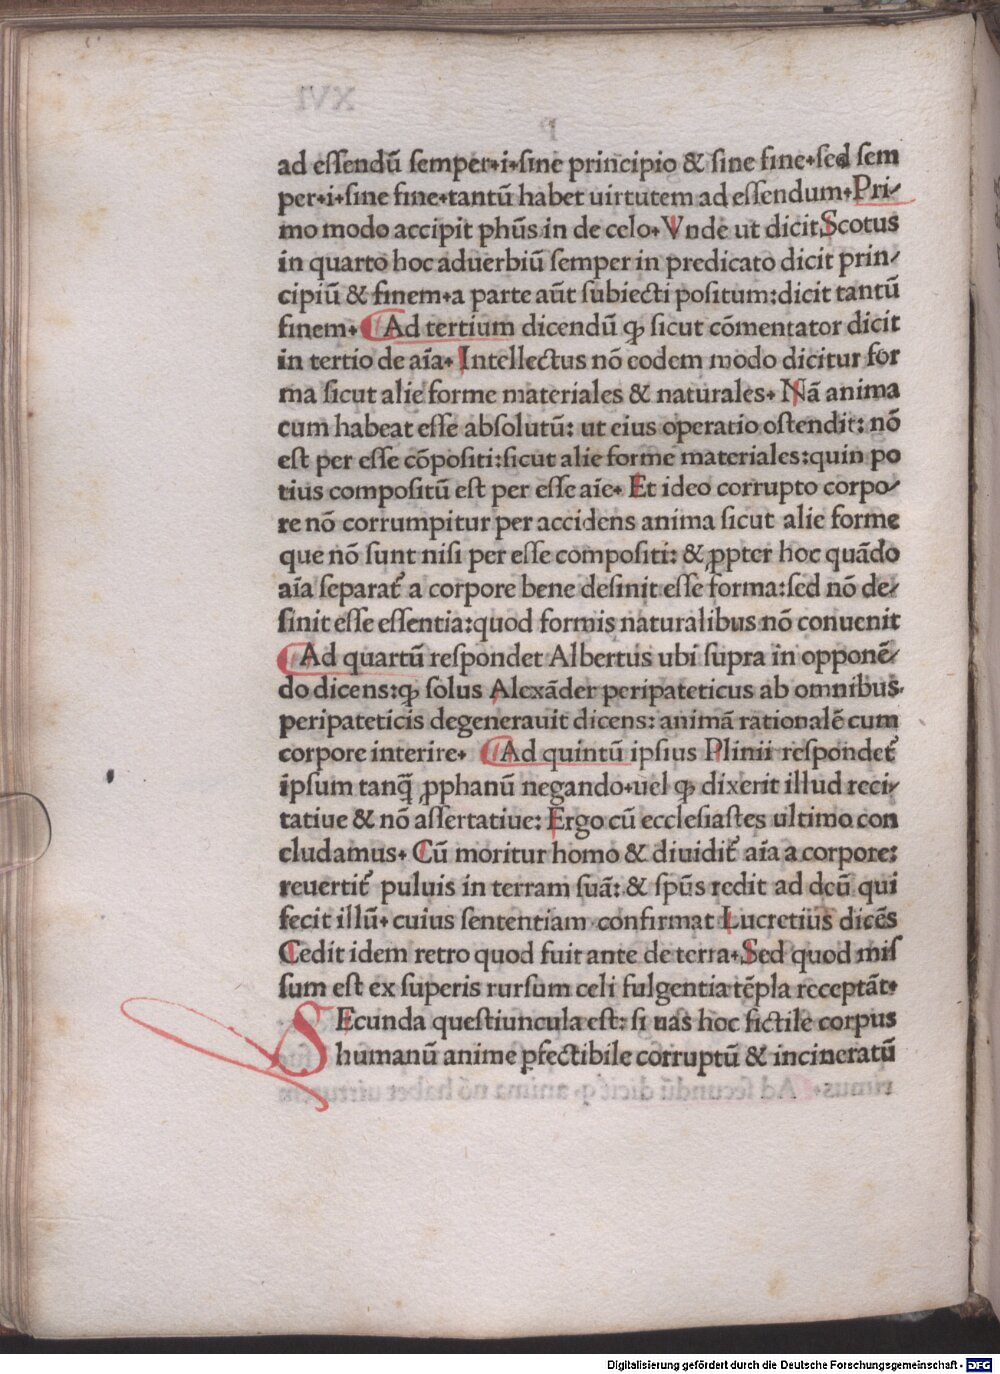 ad eſſendū ſemper·i·ſine principio & ſine fine·ſed ſem
per·i·ſine fine·tantū habet uirtutem ad eſſendum·Pri-
mo modo accipit phūs in de celo· Vnde ut dicit Scotus
in quarto hoc aduerbiū ſemper in predicato dicit prin-
cipiū & finem·a parte aūt ſubiecti poſitum:dicit tantū
finem· Ad tertium dicendū ꝙ ſicut cōmentator dicit
in tertio de aīa· Intellectus nō eodem modo dicitur for
ma ſicut alie forme materiales & naturales· Nā anima
cum habeat eſſe abſolutū: ut eius operatio oſtendit: nō
eſt per eſſe cōpoſiti:ſicut alie forme materiales:quin po
tius compoſitū eſt per eſſe aīe· Et ideo corrupto corpo-
re nō corrumpitur per accidens anima ſicut alie forme
que nō ſunt niſi per eſſe compoſiti: & ꝓpter hoc quādo
aīa ſeparat᷑ a corpore bene deſinit eſſe forma:ſed nō de-
ſinit eſſe eſſentia:quod formis naturalibus nō conuenit
Ad quartū reſpondet Albertus ubi ſupra in opponē-
do dicens:ꝙ ſolus Alexāder peripateticus ab omnibus
peripateticis degenerauit dicens: animā rationalē cum
corpore interire· Ad quintū ipſius Plinii reſpondet᷑
ipſum tanq̄ ꝓphanū negando·uel ꝙ dixerit illud reci-
tatiue & nō aſſertatiue: Ergo cū eccleſiaſtes ultimo con
cludamus· Cū moritur homo & diuidit᷑ aīa a corpore:
reuertit᷑ puluis in terram ſuā: & ſpūs redit ad deū qui
fecit illū· cuius ſententiam confirmat Lucretius dicēs
Cedit idem retro quod fuit ante de terra·Sed quod miſ
ſum eſt ex ſuperis rurſum celi fulgentia tēpla receptāt·
SEcunda queſtiuncula eſt: ſi uas hoc fictile corpus
humanū anime ꝑfectibile corruptū & incineratū
Digitalisierung gefördert durch die Deutsche Forschungsgemeinschaft - DFG